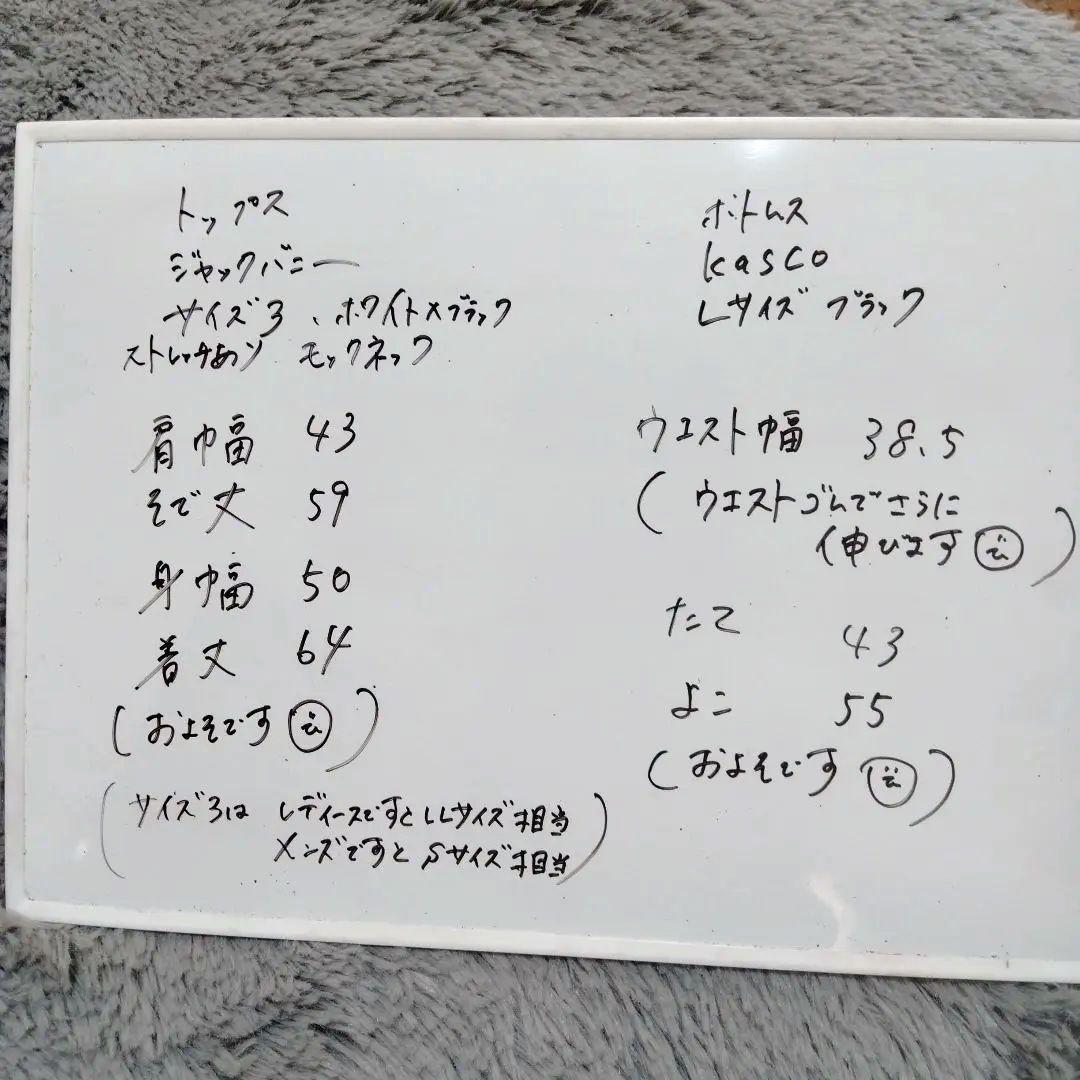 トップス
ジャックバニー
サイズ3、ホワイト×ブラック
ストレッチあり モックネック
肩巾幅 43
そで丈 59
身幅 50
着丈 64
(およそです)
(サイズ3は レディースですとLLサイズ相当
メンズですと Sサイズ相当)
ボトムス
kasco
Lサイズ ブラック
ウエスト幅 38.5
(ウエストゴムでさらに
伸びます)
たて 43
よこ 55
(およそです)